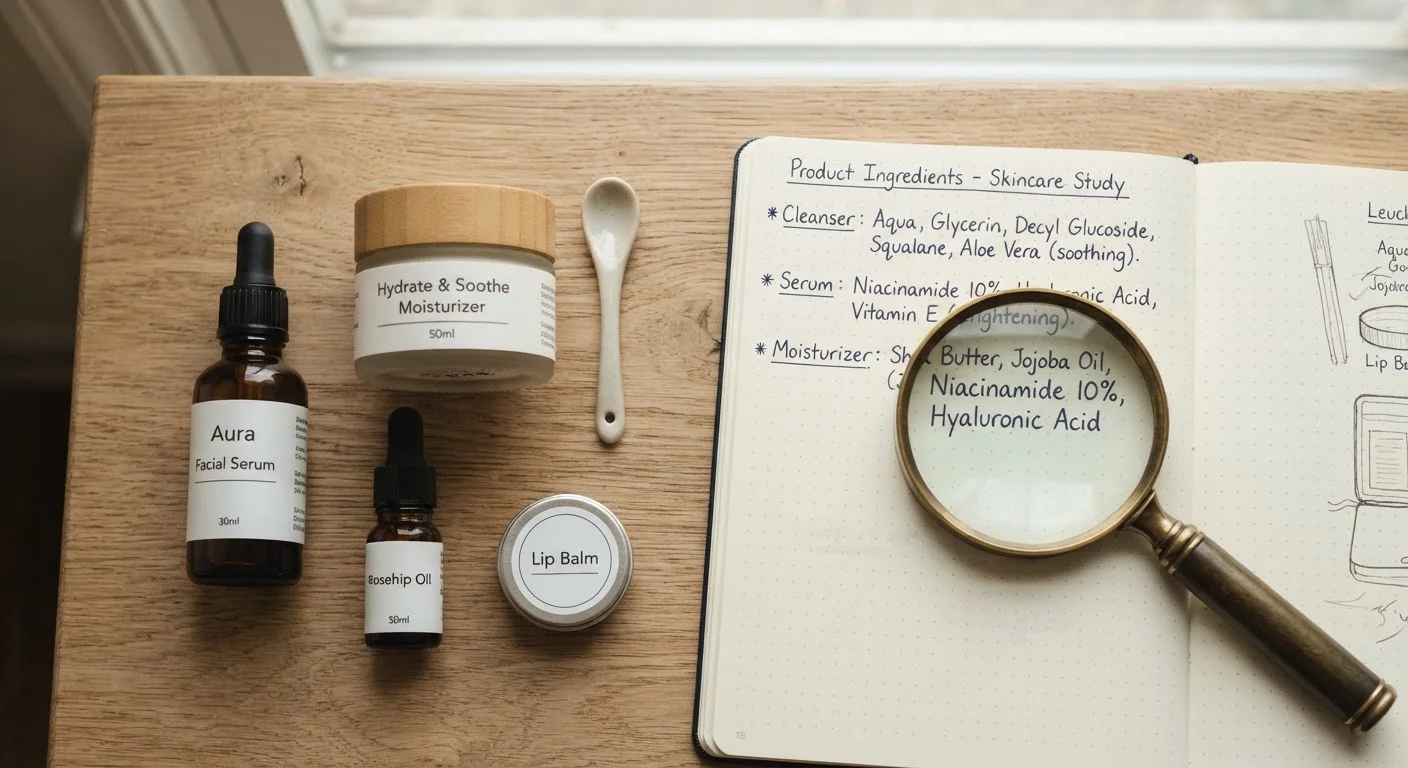 Aura
Facial Serum
30ml
Hydrate & Soothe
Moisturizer
50ml
Rosehip Oil
30ml
Lip Balm
Product Ingredients - Skincare Study
* Cleanser: Aqua, Glycerin, Decyl Glucoside,
Squalane, Aloe Vera (soothing).
* Serum: Niacinamide 10% Acid,
Vitamin E
* Moisturizer: Butter, Jojoba Oil,
Niacinamide 10%,
Hyaluronic Acid
15
Lip